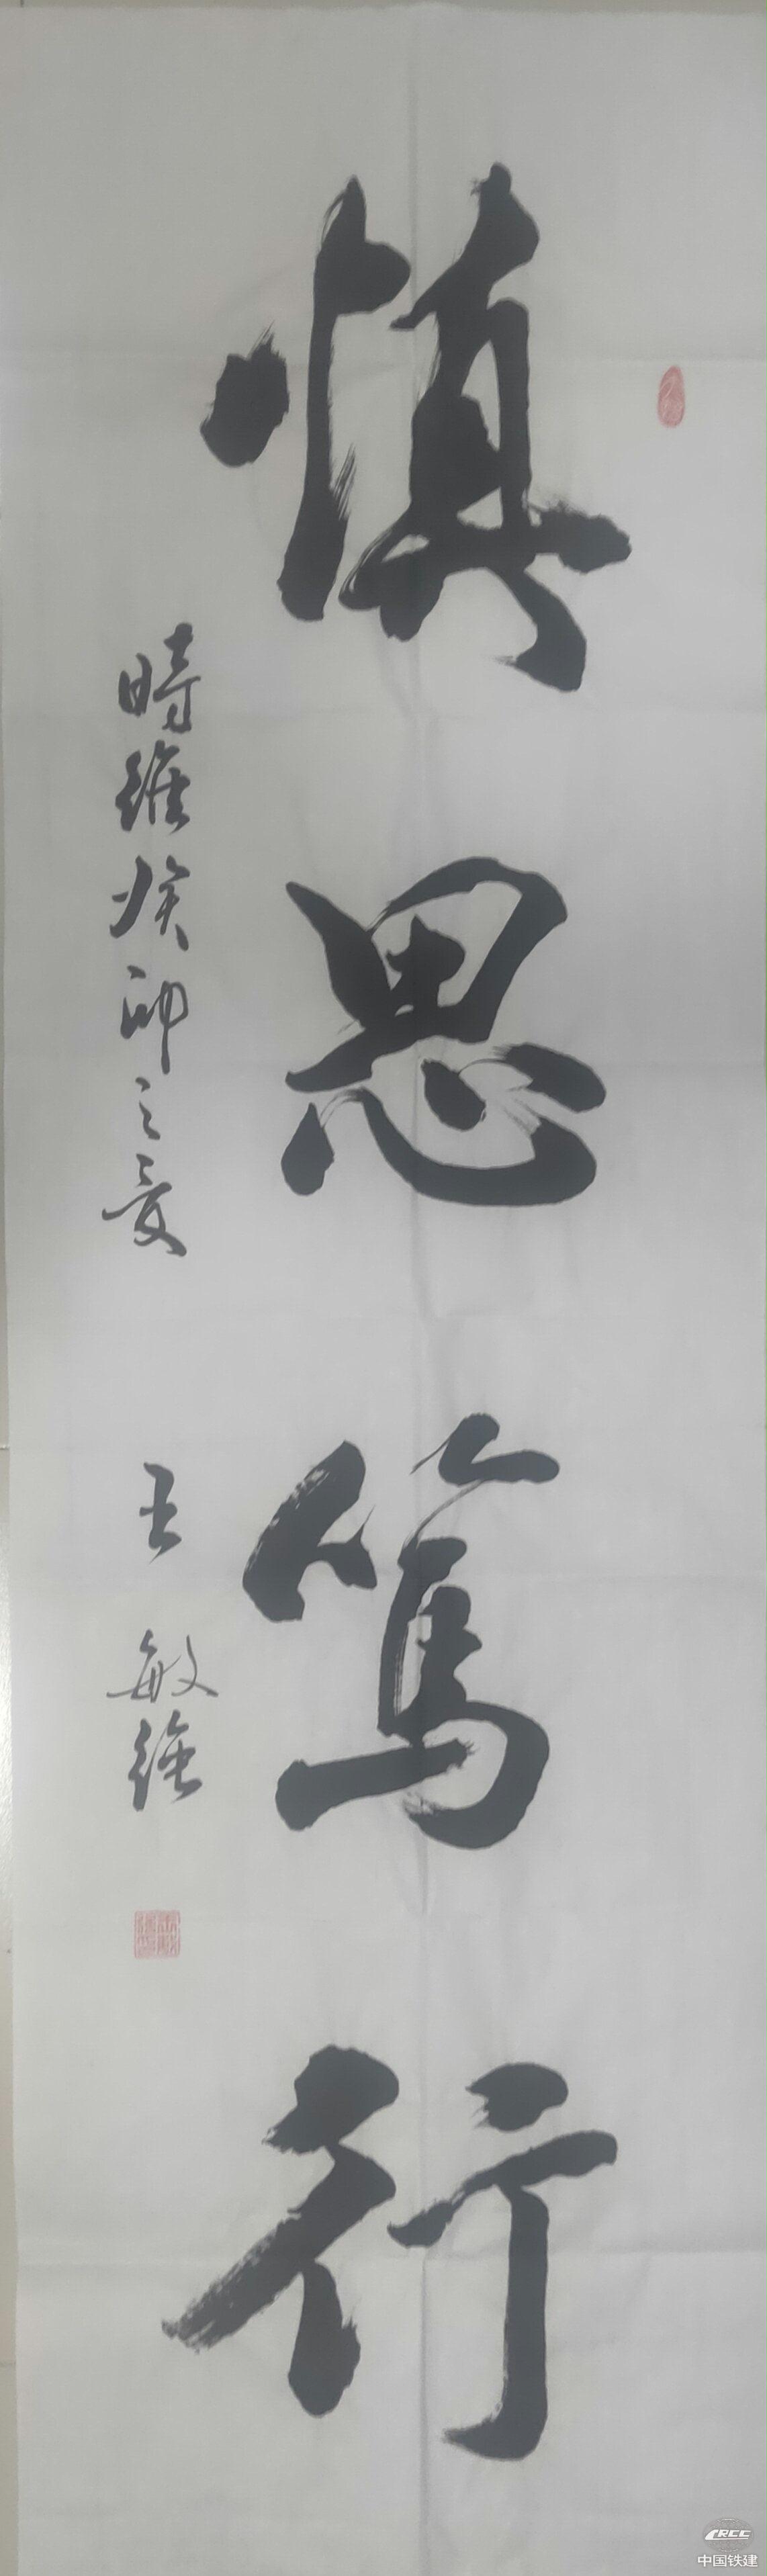 慎思篤行
時維癸卯之夏
王敏强
CRCC
中国铁建